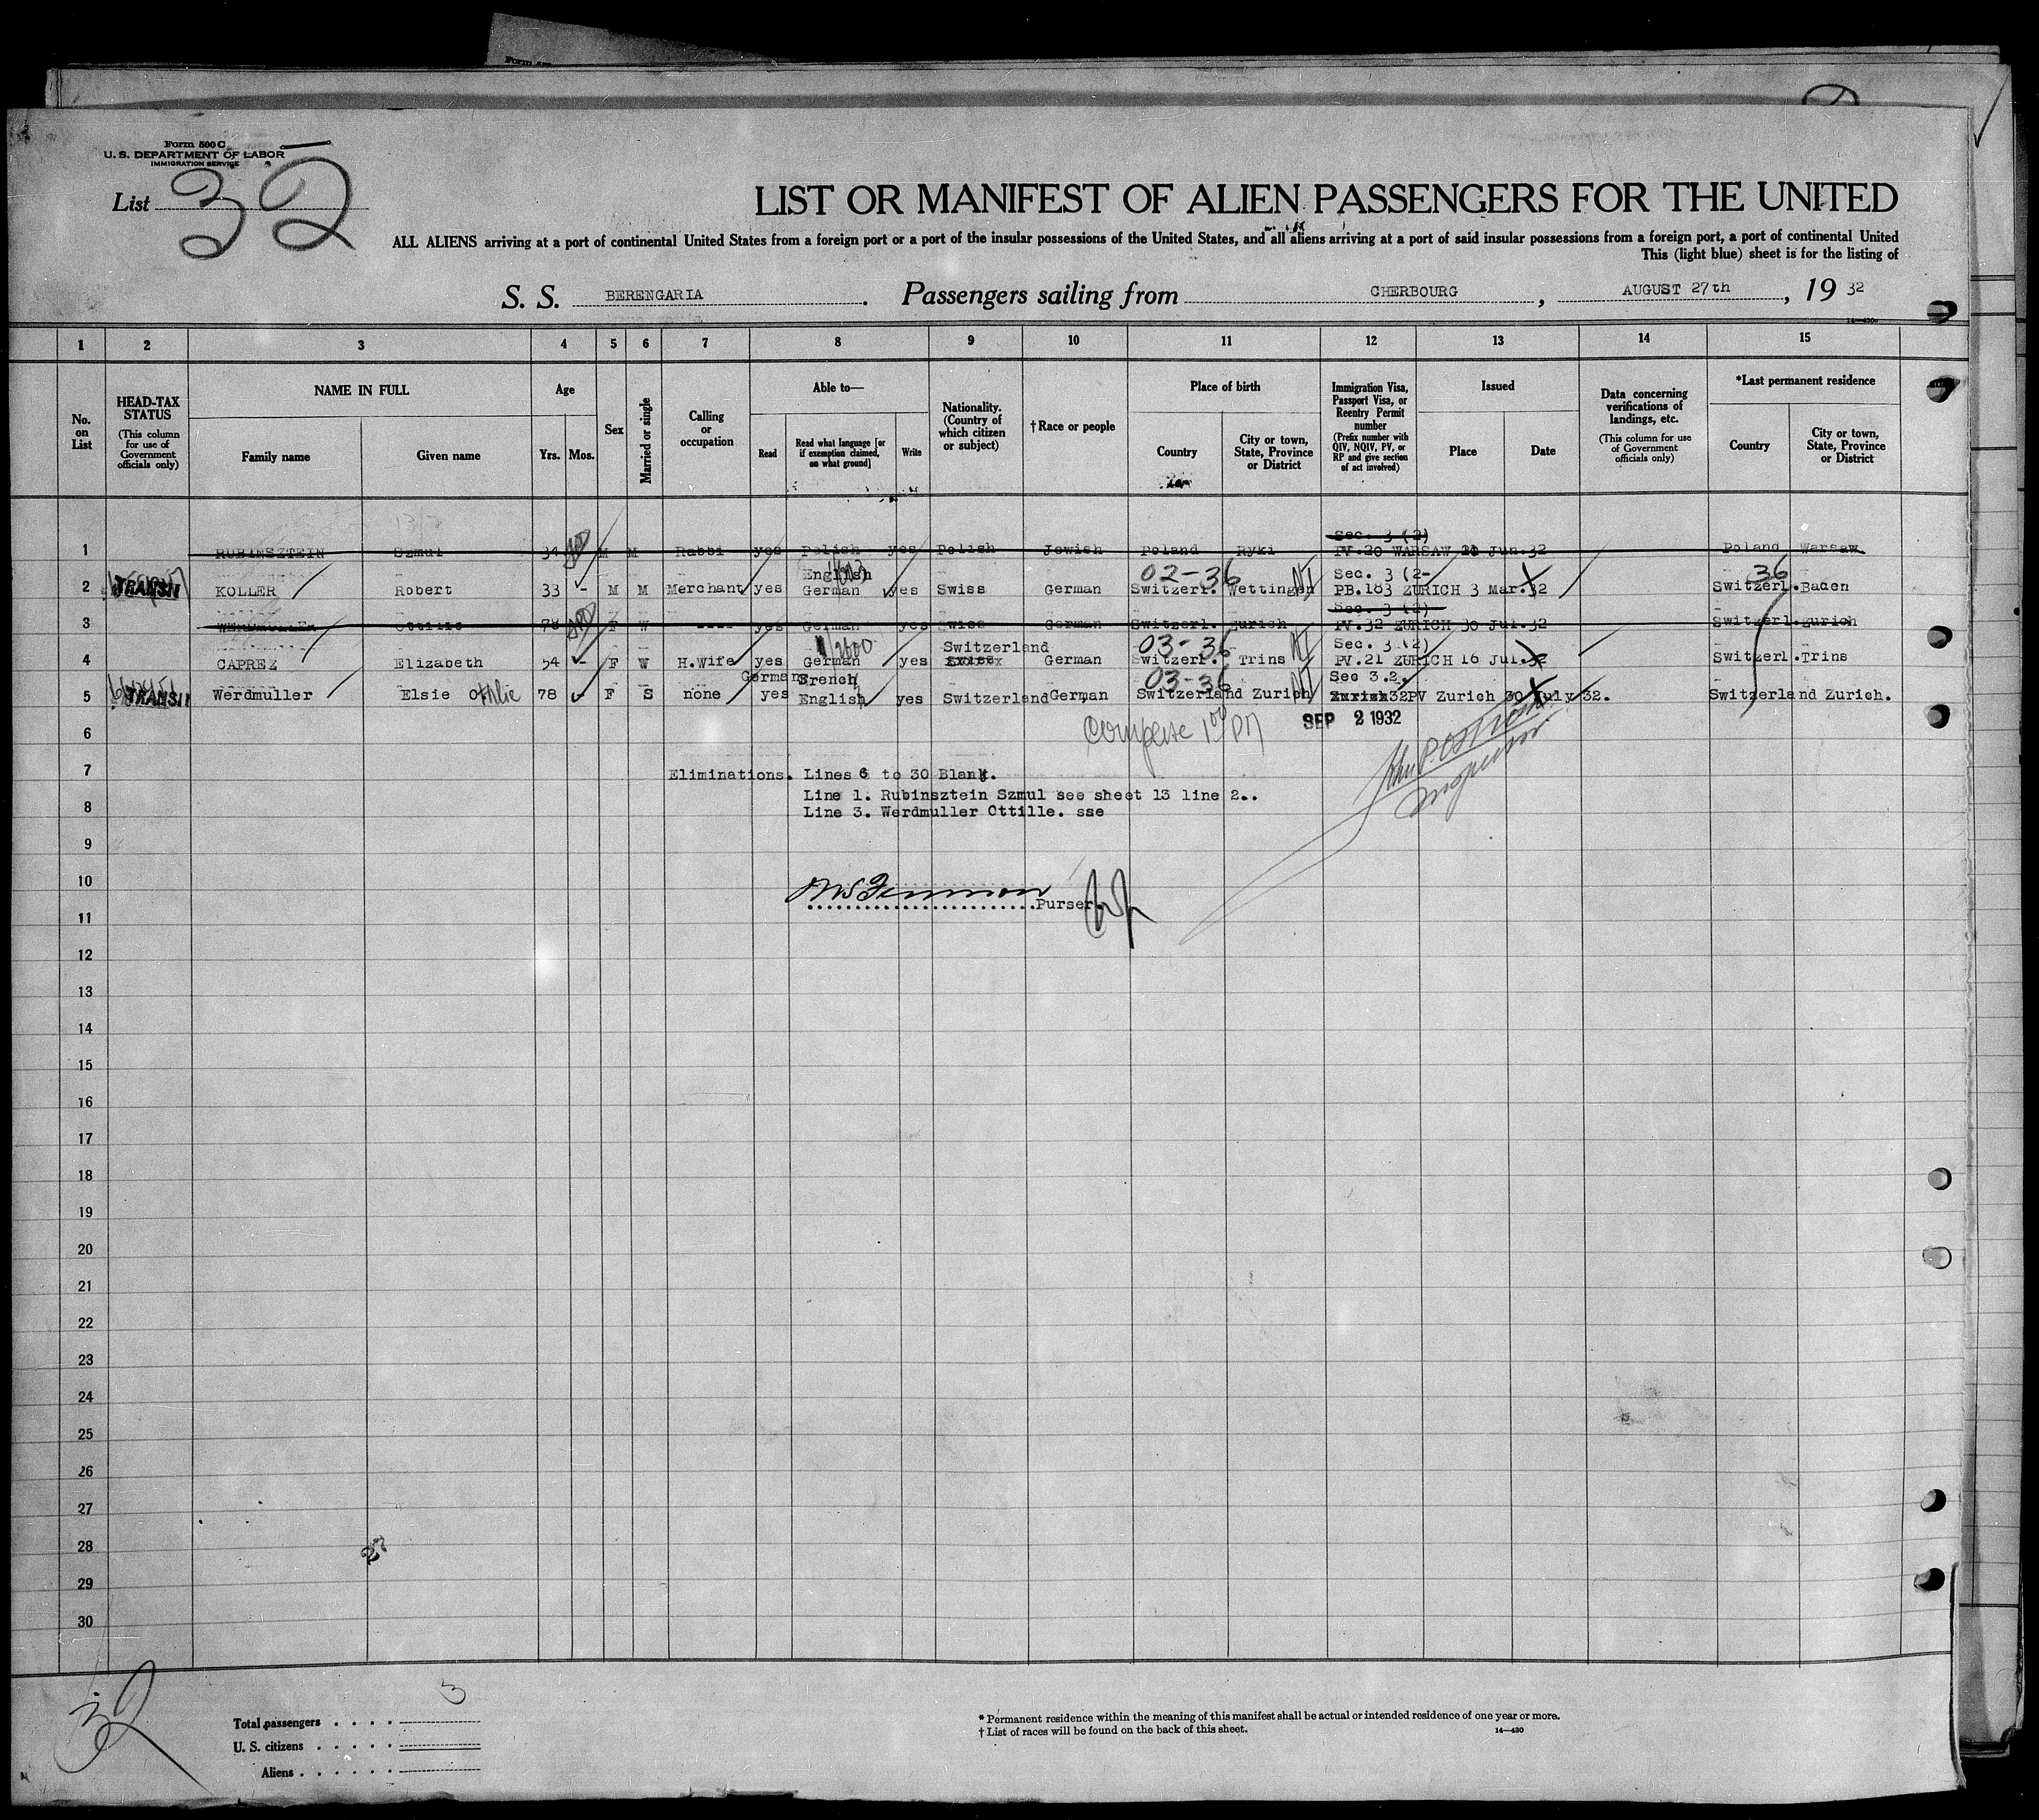 Form 500 C
U. S. DEPARTMENT OF LABOR
IMMIGRATION SERVICE
List 32
LIST OR MANIFEST OF ALIEN PASSENGERS FOR THE UNITED
ALL ALIENS arriving at a port of continental United States from a foreign port or a port of the insular possessions of the United States, and all aliens arriving at a port of said insular possessions from a foreign port, a port of continental United
This (light blue) sheet is for the listing of
S. S. BERENGARIA. Passengers sailing from CHERBOURG, AUGUST 27th, 19 32
14—430
1 2 3 4 5 6 7 8 9 10 11 12 13 14 15
No. on List
HEAD-TAX STATUS (This column for use of Government officials only)
NAME IN FULL
Family name
Given name
Age
Yrs. Mos.
Sex
Married or single
Calling or occupation
Able to—
Read
Read what language [or if exemption claimed, on what ground]
Write
Nationality. (Country of which citizen or subject)
†Race or people
Place of birth
Country
City or town, State, Province or District
Immigration Visa, Passport Visa, or Reentry Permit number (Prefix number with QIV, NQIV, PV, or RP and give section of act involved)
Issued
Place
Date
Data concerning verifications of landings, etc. (This column for use of Government officials only)
*Last permanent residence
Country
City or town, State, Province or District
Sec. 3 (2)
1 RUBINSZTEIN Szmul 34 M M Rabbi yes Polish yes Polish Jewish Poland Ryki PV.20 WARSAW 21 Jun.32 Poland Warsaw
English 02-36 Sec. 3 (2- 36
2 TRANSIT KOLLER Robert 33 - M M Merchant yes German yes Swiss German Switzerl. Wettingen PB.183 ZURICH 3 Mar.32 Switzerl. Baden
Sec. 3 (2)
3 WERDMULLER Ottilie 78 F W ---- yes German yes Swiss German Switzerl. Zurich PV.32 ZURICH 30 Jul.32 Switzerl. Zurich
Switzerland 03-36 Sec. 3 (2)
4 CAPREZ Elizabeth 54 - F W H.Wife yes German yes Swiss German Switzerl. Trins PV.21 ZURICH 16 Jul.32 Switzerl. Trins
German French 03-36 Sec 3.2.
5 TRANSIT Werdmuller Elsie Othlie 78 - F S none yes English yes Switzerland German Switzerland Zurich Zurich 32PV Zurich 30 July 32. Switzerland Zurich.
6 Complete 1 00 PM SEP 2 1932
7 Eliminations. Lines 6 to 30 Blank.
Line 1. Rubinsztein Szmul see sheet 13 line 2..
8 Line 3. Werdmuller Ottille. sse
Inspector
9
10
Purser
11
12
13
14
15
16
17
18
19
20
21
22
23
24
25
26
27
28 27
29
30
32
3
Total passengers
U. S. citizens
Aliens
* Permanent residence within the meaning of this manifest shall be actual or intended residence of one year or more.
† List of races will be found on the back of this sheet. 14—430